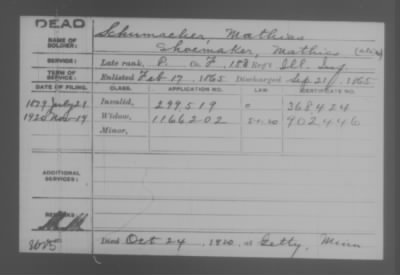 DEAD
NAME OF SOLDIER: Schumacher, Mathias
Shoemaker, Mathias (alias)
SERVICE: Late rank, P. Co. F, 158 Reg't Ill. Inf
TERM OF SERVICE: Enlisted Feb 17, 1865 Discharged Sep. 21, 1865
DATE OF FILING. CLASS. APPLICATION NO. LAW. CERTIFICATE NO.
1879 July 21 Invalid, 299519 368424
1920 Nov 19 Widow, 1166202 902446
Minor,
ADDITIONAL SERVICES:
REMARKS:
Died Oct 24, 1920, at Getty, Minn